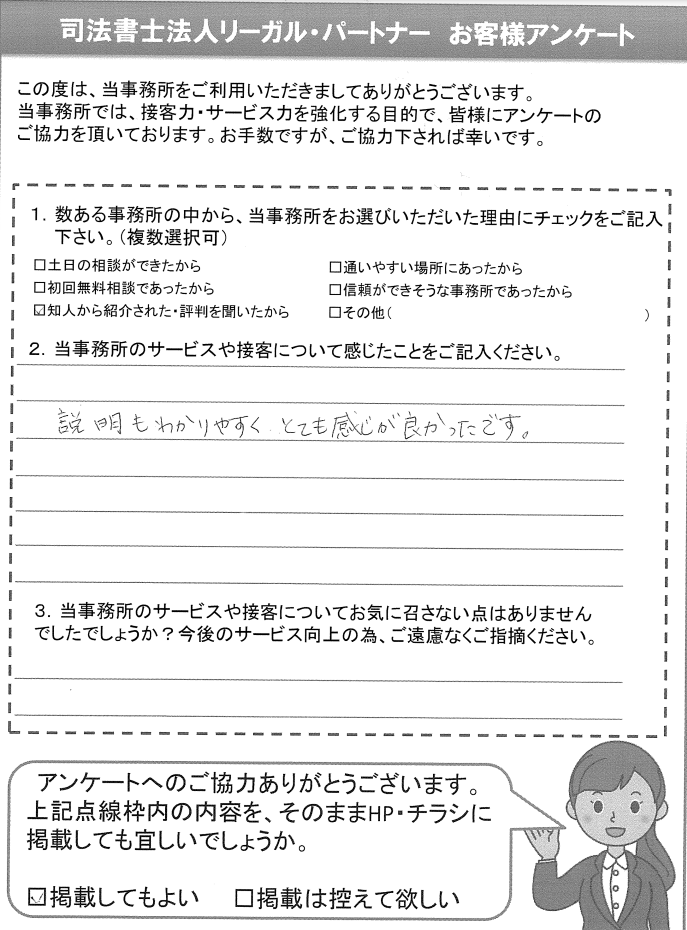 司法書士法人リーガル・パートナー お客様アンケート
この度は、当事務所をご利用いただきましてありがとうございます。
当事務所では、接客力・サービス力を強化する目的で、皆様にアンケートの
ご協力を頂いております。お手数ですが、ご協力下されば幸いです。
1. 数ある事務所の中から、当事務所をお選びいただいた理由にチェックをご記入
下さい。（複数選択可）
□土日の相談ができたから □通いやすい場所にあったから
□初回無料相談であったから □信頼ができそうな事務所であったから
☑知人から紹介された・評判を聞いたから □その他（ ）
2. 当事務所のサービスや接客について感じたことをご記入ください。
説明もわかりやすく とても感じが良かったです。
3. 当事務所のサービスや接客についてお気に召さない点はありません
でしたでしょうか？今後のサービス向上の為、ご遠慮なくご指摘ください。
アンケートへのご協力ありがとうございます。
上記点線枠内の内容を、そのままHP・チラシに
掲載しても宜しいでしょうか。
☑掲載してもよい □掲載は控えて欲しい